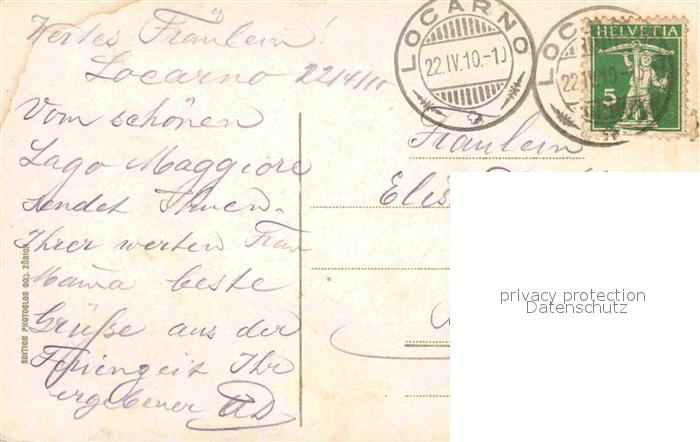 Wertes Fräulein!
Locarno 22/4/10
Vom schönen
Lago Maggiore
sendet Ihnen,
Ihrer werten Frau
Mama beste
Grüße aus der
Ferienzeit Ihr
ergebener AD
EDITION PHOTOGLOB CO., ZÜRICH
LOCARNO
22.IV.10.-10
LOCARNO
22.IV.10.-
HELVETIA
5
Fräulein
privacy protection
Datenschutz